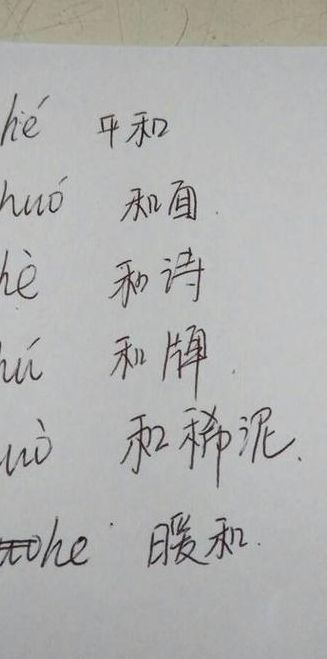 hé 平和
huó 和面.
hè 和诗
hú 和牌.
huò 和稀泥.
he 暖和.